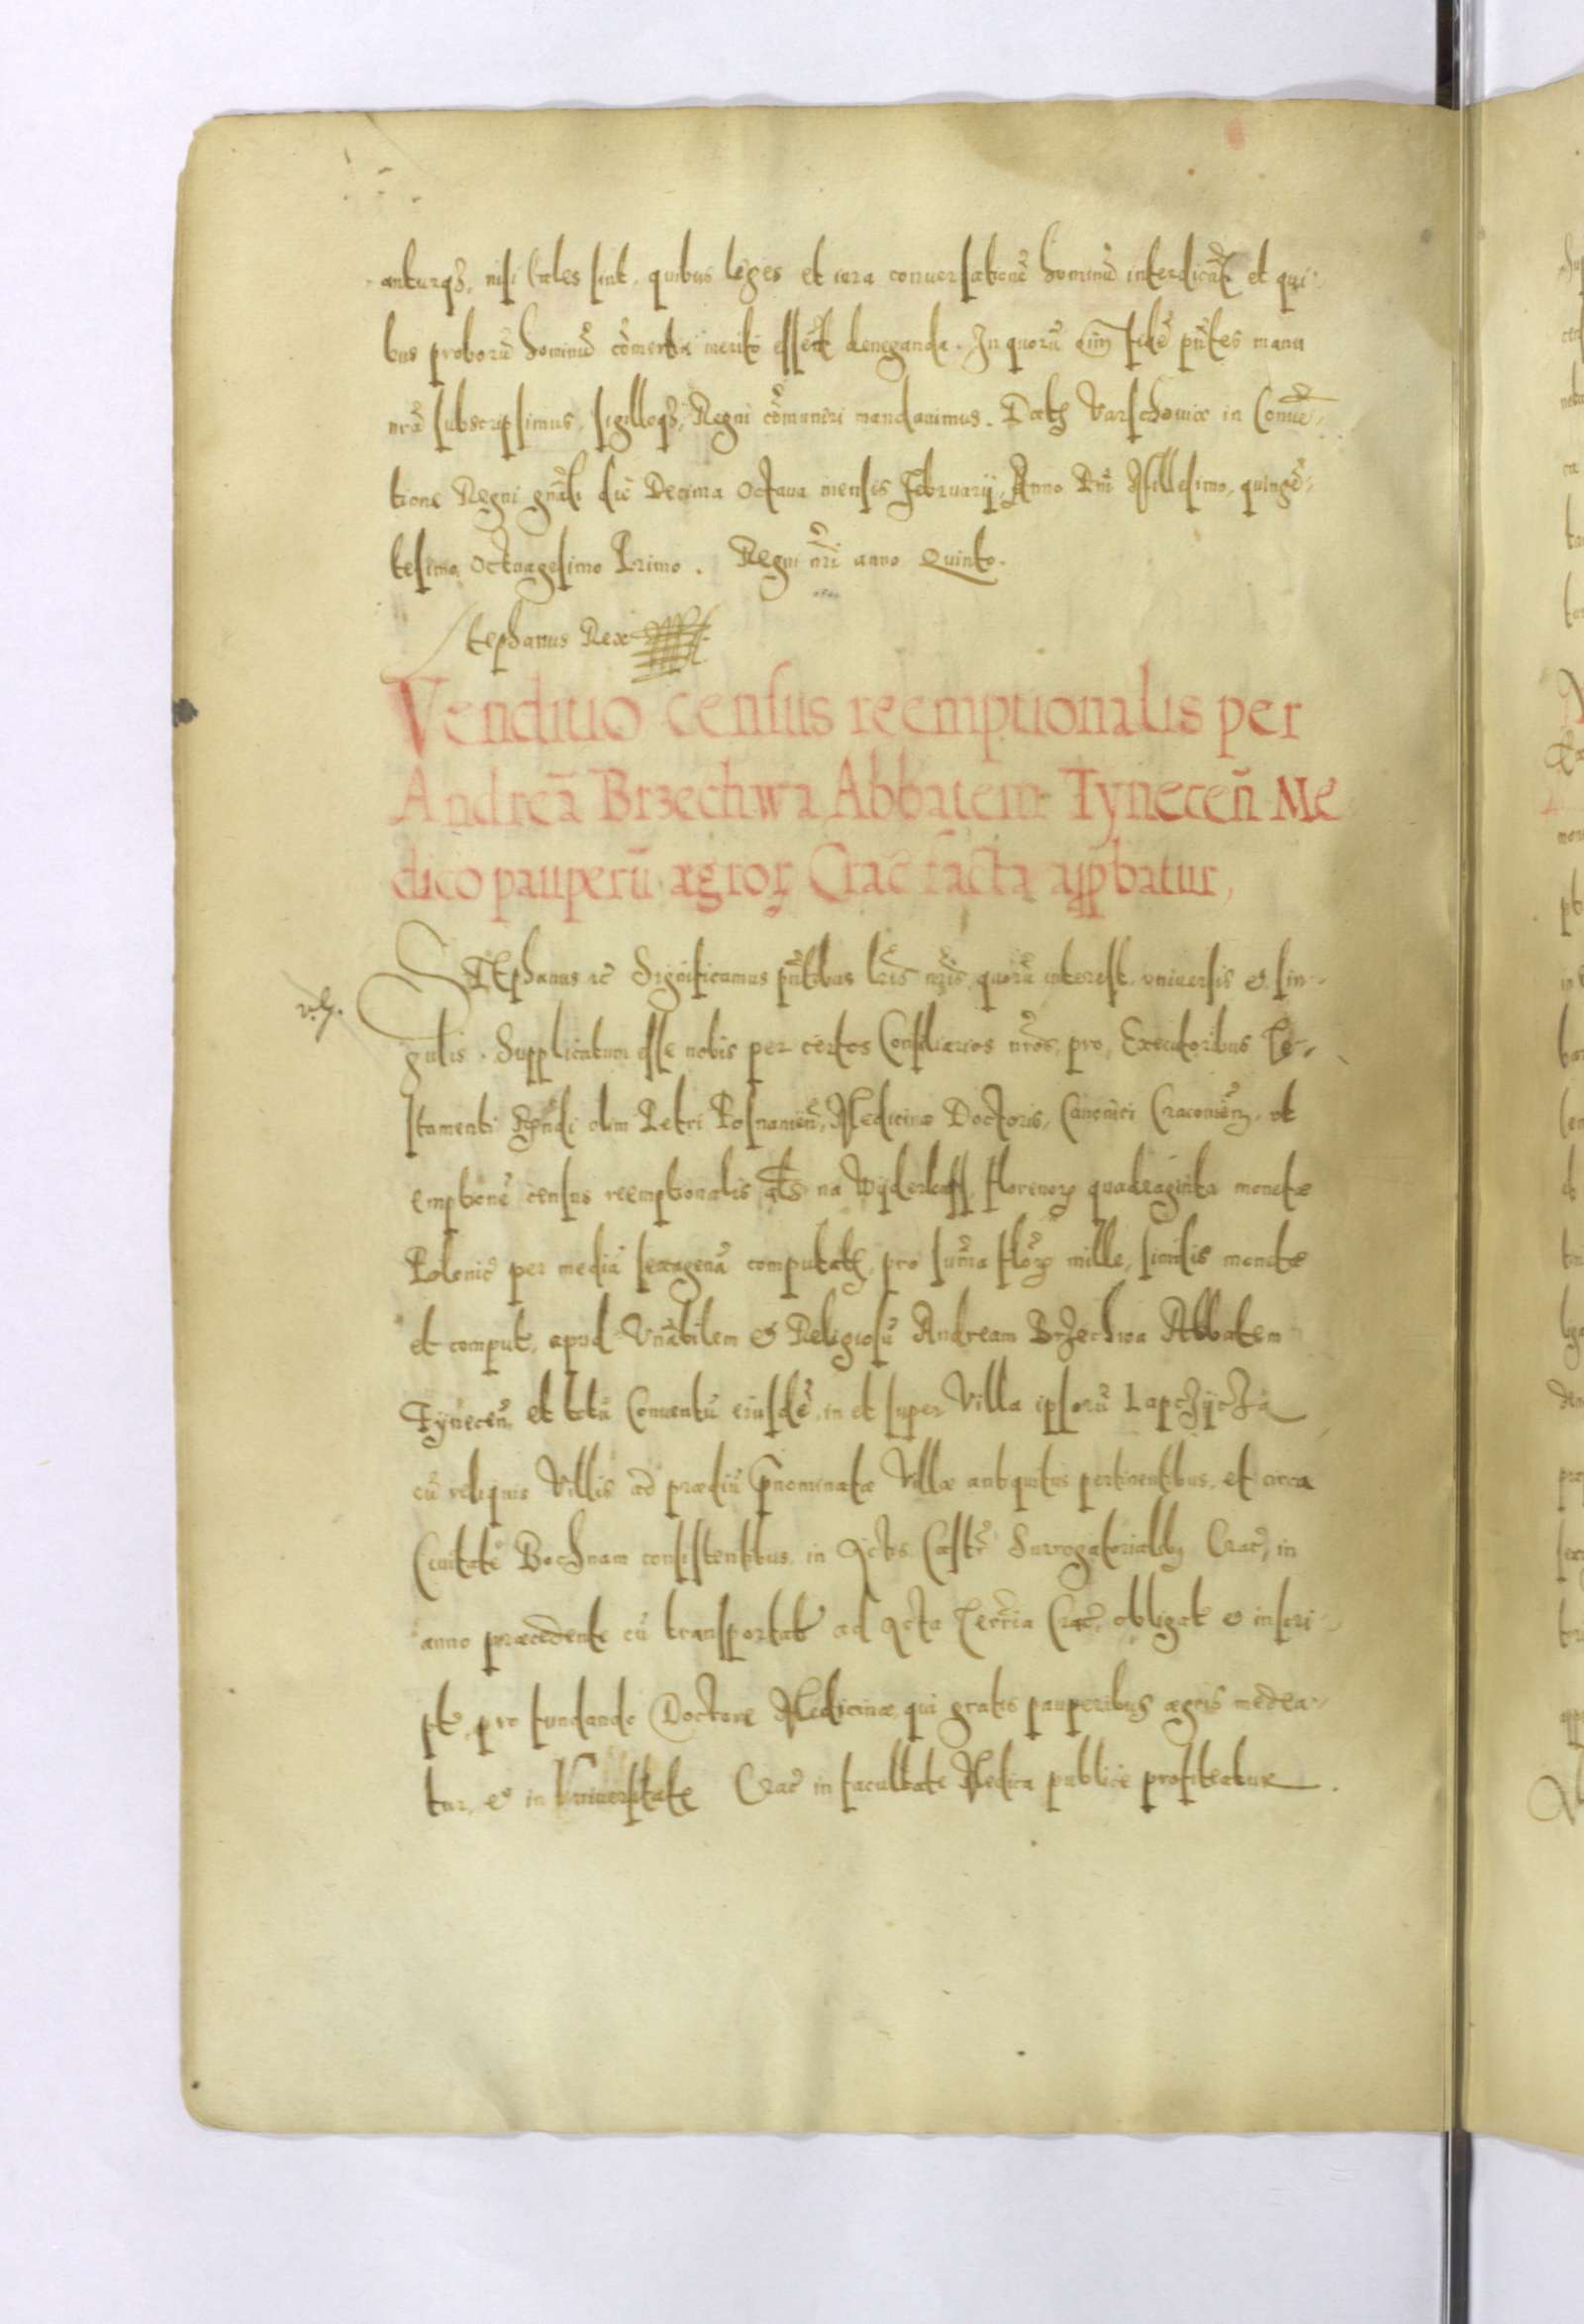 anturq₃, nisi tales sint, quibus leges et iura conuersationē hominū interdicūt et qui
bus proborū hominū cōmertia merito essēt deneganda. In quorū oīm fidē pn̄tes manu
nrā subscripsimus, sigilloq₃ Regni cōmuniri mandauimus. Datȝ Varschouiæ in Conuē-
tione Regni gnāli die Decima Octaua mensis February, Anno Dnī Millesimo, quingē-
tesimo Octuagesimo Primo. Regni nrī anno Quinto.
Stephanus Rex
Venditio census reemptionalis per
Andreā Brzechwa Abbatem Tyneceñ Me
dico pauperū ægroꝝ Crac̄ facta apꝓbatur,
STEphanus rc̄ Significamus pn̄tibus lrīs nrīs quorū interest, vniuersis & sin-
gulis. Supplicatum esse nobis per certos Consiliarios nrōs, pro Executoribus Te-
stamenti Rn̄di olim Petri Posnanieñ, Medicinæ Doctoris, Canonici Cracouieñ, vt
emptionē census reemptionalis als na Wyderkaff, florenoꝝ quadraginta monetæ
Polonic̄ per mediā sexagenā computatȝ, pro sum̄a flōꝝ mille, similis monetæ
et comput, apud Vnābilem & Religiosū Andream Brzechwa Abbatem
Tyneceñ, et totū Conuentū eiusdē, in et super Villa ipsorū Lapczycza
cū reliquis Villis ad prædiū p̄nominatæ Villæ antiquitus pertinentibus, et circa
Ciuitatē Bochnam consistentibus, in Actis Castr̄ Surrogatorialibȝ Crac̄, in
anno præcedente cū transportat ad Acta Terr̄ia Crac̄, obligat & inscri-
pt, pro fundando Doctore Medicinæ, qui gratis pauperibus ægris medea-
tur, & in Vniuersitate Crac̄ in facultate Medica publice profiteatur.